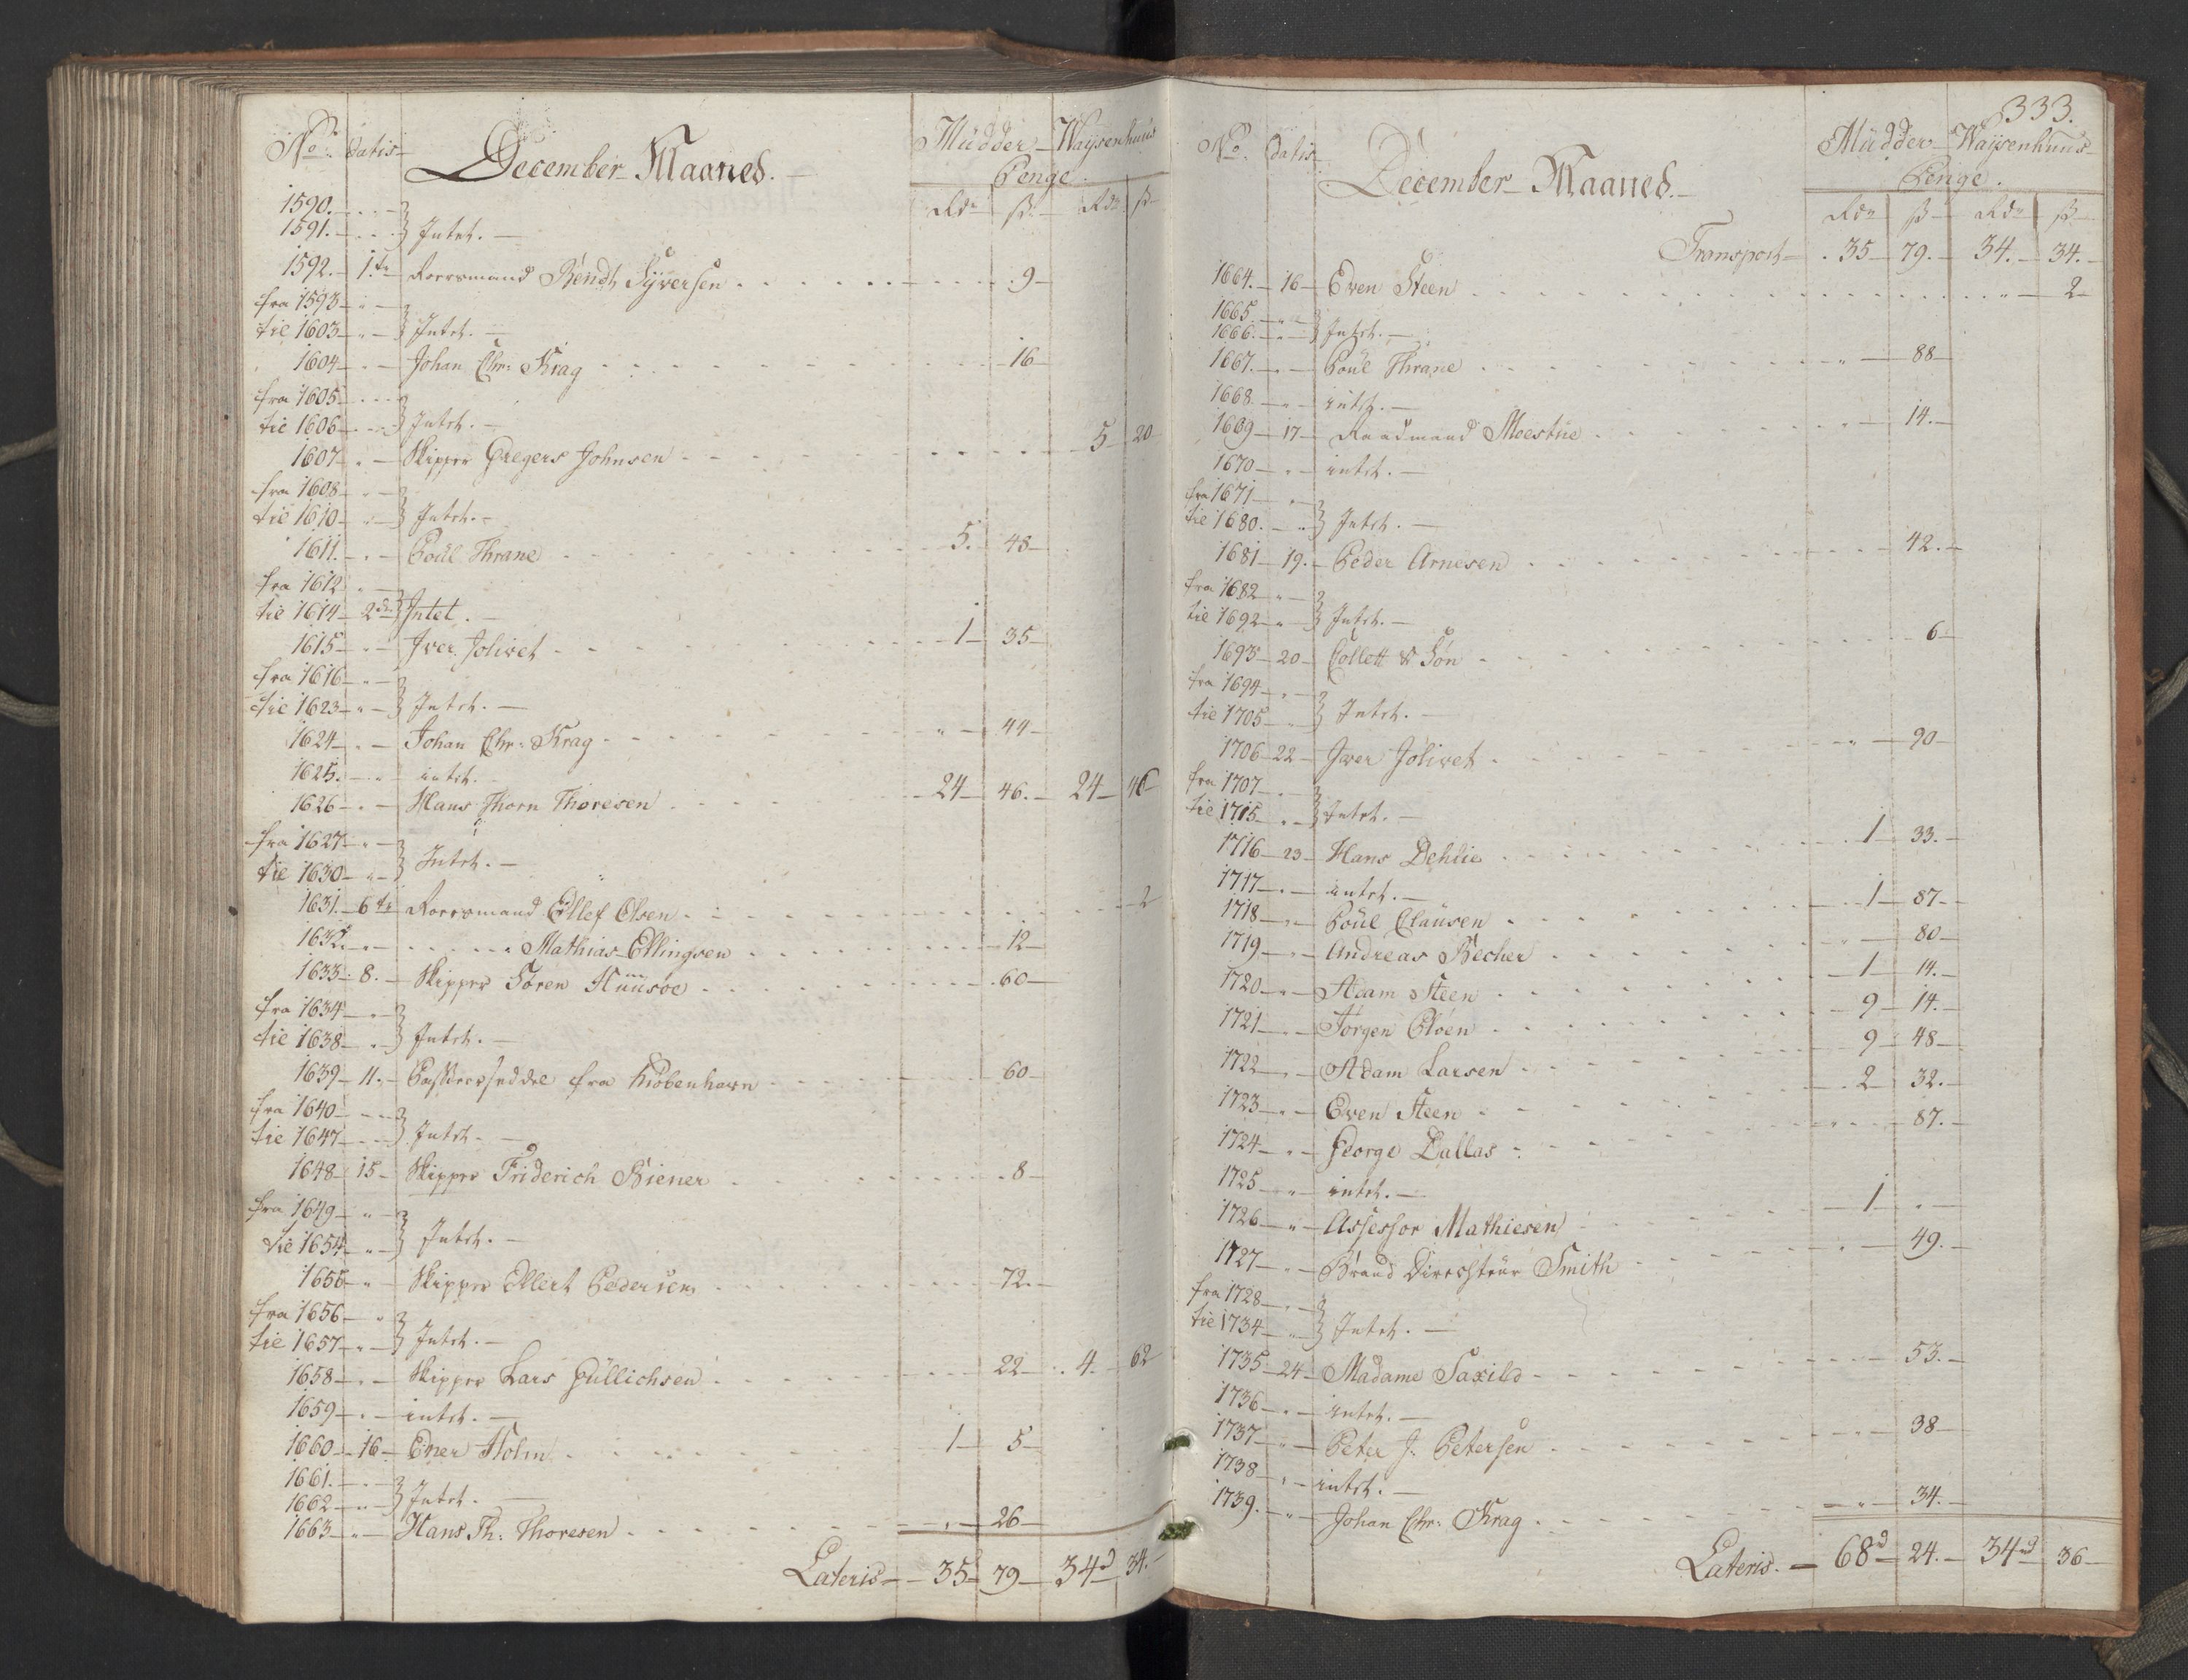 No. datis December Maaned. Müdder Waÿsenhuus
Penge.
Rdr ß Rdr ß
1590.
1591. Intet.
1592. 1te Roersmand Bendt Syversen 9
fra 1593
til 1603 Intet.
1604 Johan Chr: Krag 16
fra 1605
til 1606 Intet.
1607 Skipper Gregers Johnsen 5 20
fra 1608
til 1610 Intet.
1611. Poül Thrane 5. 48
fra 1612
til 1614 2den Intet.
1615 Iver Jolivet 1 35
fra 1616
til 1623 Intet.
1624 Johan Chr: Krag " 44
1625. intet.
1626 Hans Thorn Thoresen 24 46. 24 46
fra 1627
til 1630 Intet.
1631. 6te Roersmand Ellef Olsen 2
1632. Mathias Ellingsen 12
1633 8. Skipper Søren Huusoe 60
fra 1634
til 1638 Intet.
1639 11. Passeerseddel fra Kiøbenhavn 60
fra 1640
til 1647 Intet.
1648 15 Skipper Friderich Kiener 8
fra 1649
til 1654 Intet.
1655 Skipper Ellert Pedersen 72.
fra 1656
til 1657 Intet.
1658 Skipper Lars Güllichsen 22 4. 62
1659 intet.
1660 16 Ener Holm 1 5
1661.
1662 Intet.
1663 Hans Th: Thoresen " 26
Lateris 35 79 34d 34.
333.
No. datis December Maaned. Müdder Waÿsenhuus
Penge.
Rdr ß Rdr ß
Transport 35 79. 34. 34.
1664. 16 Even Steen " 2
1665.
1666. Intet.
1667. Poül Thrane " 88
1668. intet.
1669 17 Raadmand Moestüe " 14.
1670 intet.
fra 1671
til 1680. Intet.
1681 19. Peder Arnesen 42.
fra 1682
til 1692 Intet.
1693 20 Collett & Søn 6
fra 1694
til 1705 Intet.
1706 22 Iver Jolivet " 90
fra 1707
til 1715 Intet.
1716 23 Hans Dehlie 1 33.
1717 intet.
1718 Poül Claüsen 1 87
1719 Andreas Becher " 80
1720 Adam Steen 1 14.
1721 Jørgen Cloen 9 14.
1722 Adam Larsen 9 48
1723 Even Steen 2 32.
1724 George Dallas " 87.
1725 intet.
1726 Assessor Mathiesen 1 "
1727 Brand Directeur Smith " 49.
fra 1728
til 1734 Intet.
1735 24 Madame Saxild 53.
1736 intet.
1737 Peter J. Petersen 38
1738 intet.
1739. Johan Chr: Krag " 34.
Lateris. 68d 24. 34d 36